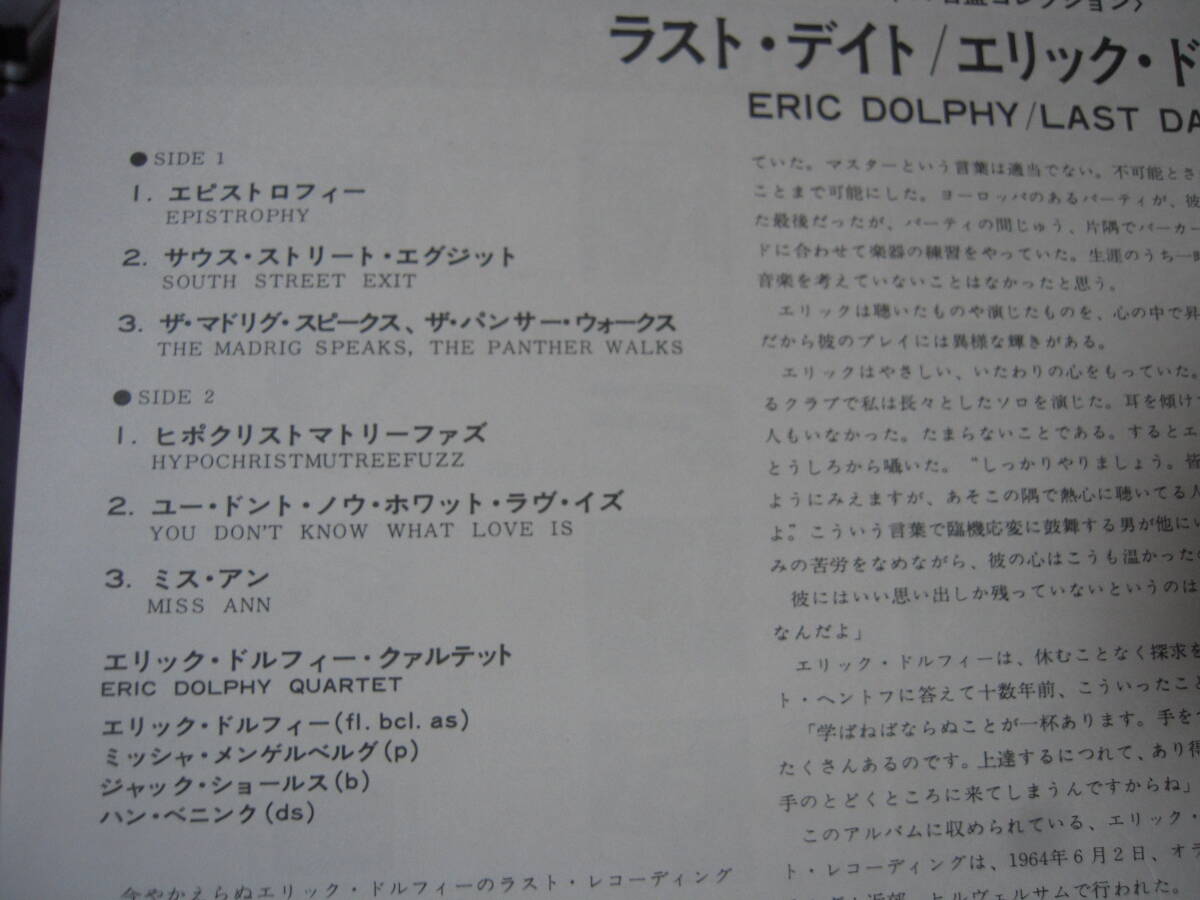 コレクション〉
ラスト・デイト/エリック・ド
ERIC DOLPHY/LAST DA
● SIDE 1
1. エピストロフィー
EPISTROPHY
2. サウス・ストリート・エグジット
SOUTH STREET EXIT
3. ザ・マドリグ・スピークス、ザ・パンサー・ウォークス
THE MADRIG SPEAKS, THE PANTHER WALKS
● SIDE 2
1. ヒポクリストマトリーファズ
HYPOCHRISTMUTREEFUZZ
2. ユー・ドント・ノウ・ホワット・ラヴ・イズ
YOU DON'T KNOW WHAT LOVE IS
3. ミス・アン
MISS ANN
エリック・ドルフィー・クァルテット
ERIC DOLPHY QUARTET
エリック・ドルフィー(fl. bcl. as)
ミッシャ・メンゲルベルグ(p)
ジャック・ショールス(b)
ハン・ベニンク(ds)
今やかえらぬエリック・ドルフィーのラスト・レコーディング
ていた。マスターという言葉は適当でない。不可能とさ
ことまで可能にした。ヨーロッパのあるパーティが、彼
た最後だったが、パーティの間じゅう、片隅でパーカー
ドに合わせて楽器の練習をやっていた。生涯のうち一時
音楽を考えていないことはなかったと思う。
エリックは聴いたものや演じたものを、心の中で昇
だから彼のプレイには異様な輝きがある。
エリックはやさしい、いたわりの心をもっていた。
るクラブで私は長々としたソロを演じた。耳を傾け
人もいなかった。たまらないことである。するとエ
とうしろから囁いた。“しっかりやりましょう。皆
ようにみえますが、あそこの隅で熱心に聴いてる人
よ”こういう言葉で臨機応変に鼓舞する男が他にい
みの苦労をなめながら、彼の心はこうも温かった
彼にはいい思い出しか残っていないというのは
なんだよ」
エリック・ドルフィーは、休むことなく探求を
ト・ヘントフに答えて十数年前、こういったこと
「学ばねばならぬことが一杯あります。手を
たくさんあるのです。上達するにつれて、あり得
手のとどくところに来てしまうんですからね」
このアルバムに収められている、エリック・
ト・レコーディングは、1964年6月2日、オラ
近郊、ヒルヴェルサムで行われた。